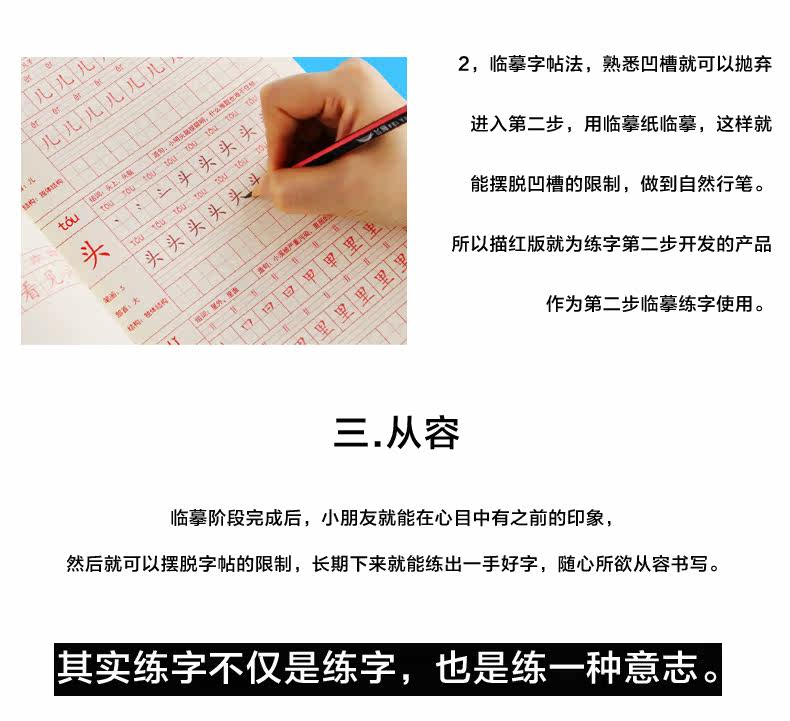 2，临摹字帖法，熟悉凹槽就可以抛弃
进入第二步，用临摹纸临摹，这样就
能摆脱凹槽的限制，做到自然行笔。
所以描红版就为练字第二步开发的产品
作为第二步临摹练字使用。
儿儿儿儿儿儿儿
结构：独体结构
组词：头上、头版
tóu tóu tóu tóu tóu
头头头头
tóu
头
头头头头头头
笔画：5
部首：大
结构：独体结构
组词：里外、里面
里里里里
看见
三.从容
临摹阶段完成后，小朋友就能在心目中有之前的印象，
然后就可以摆脱字帖的限制，长期下来就能练出一手好字，随心所欲从容书写。
其实练字不仅是练字，也是练一种意志。